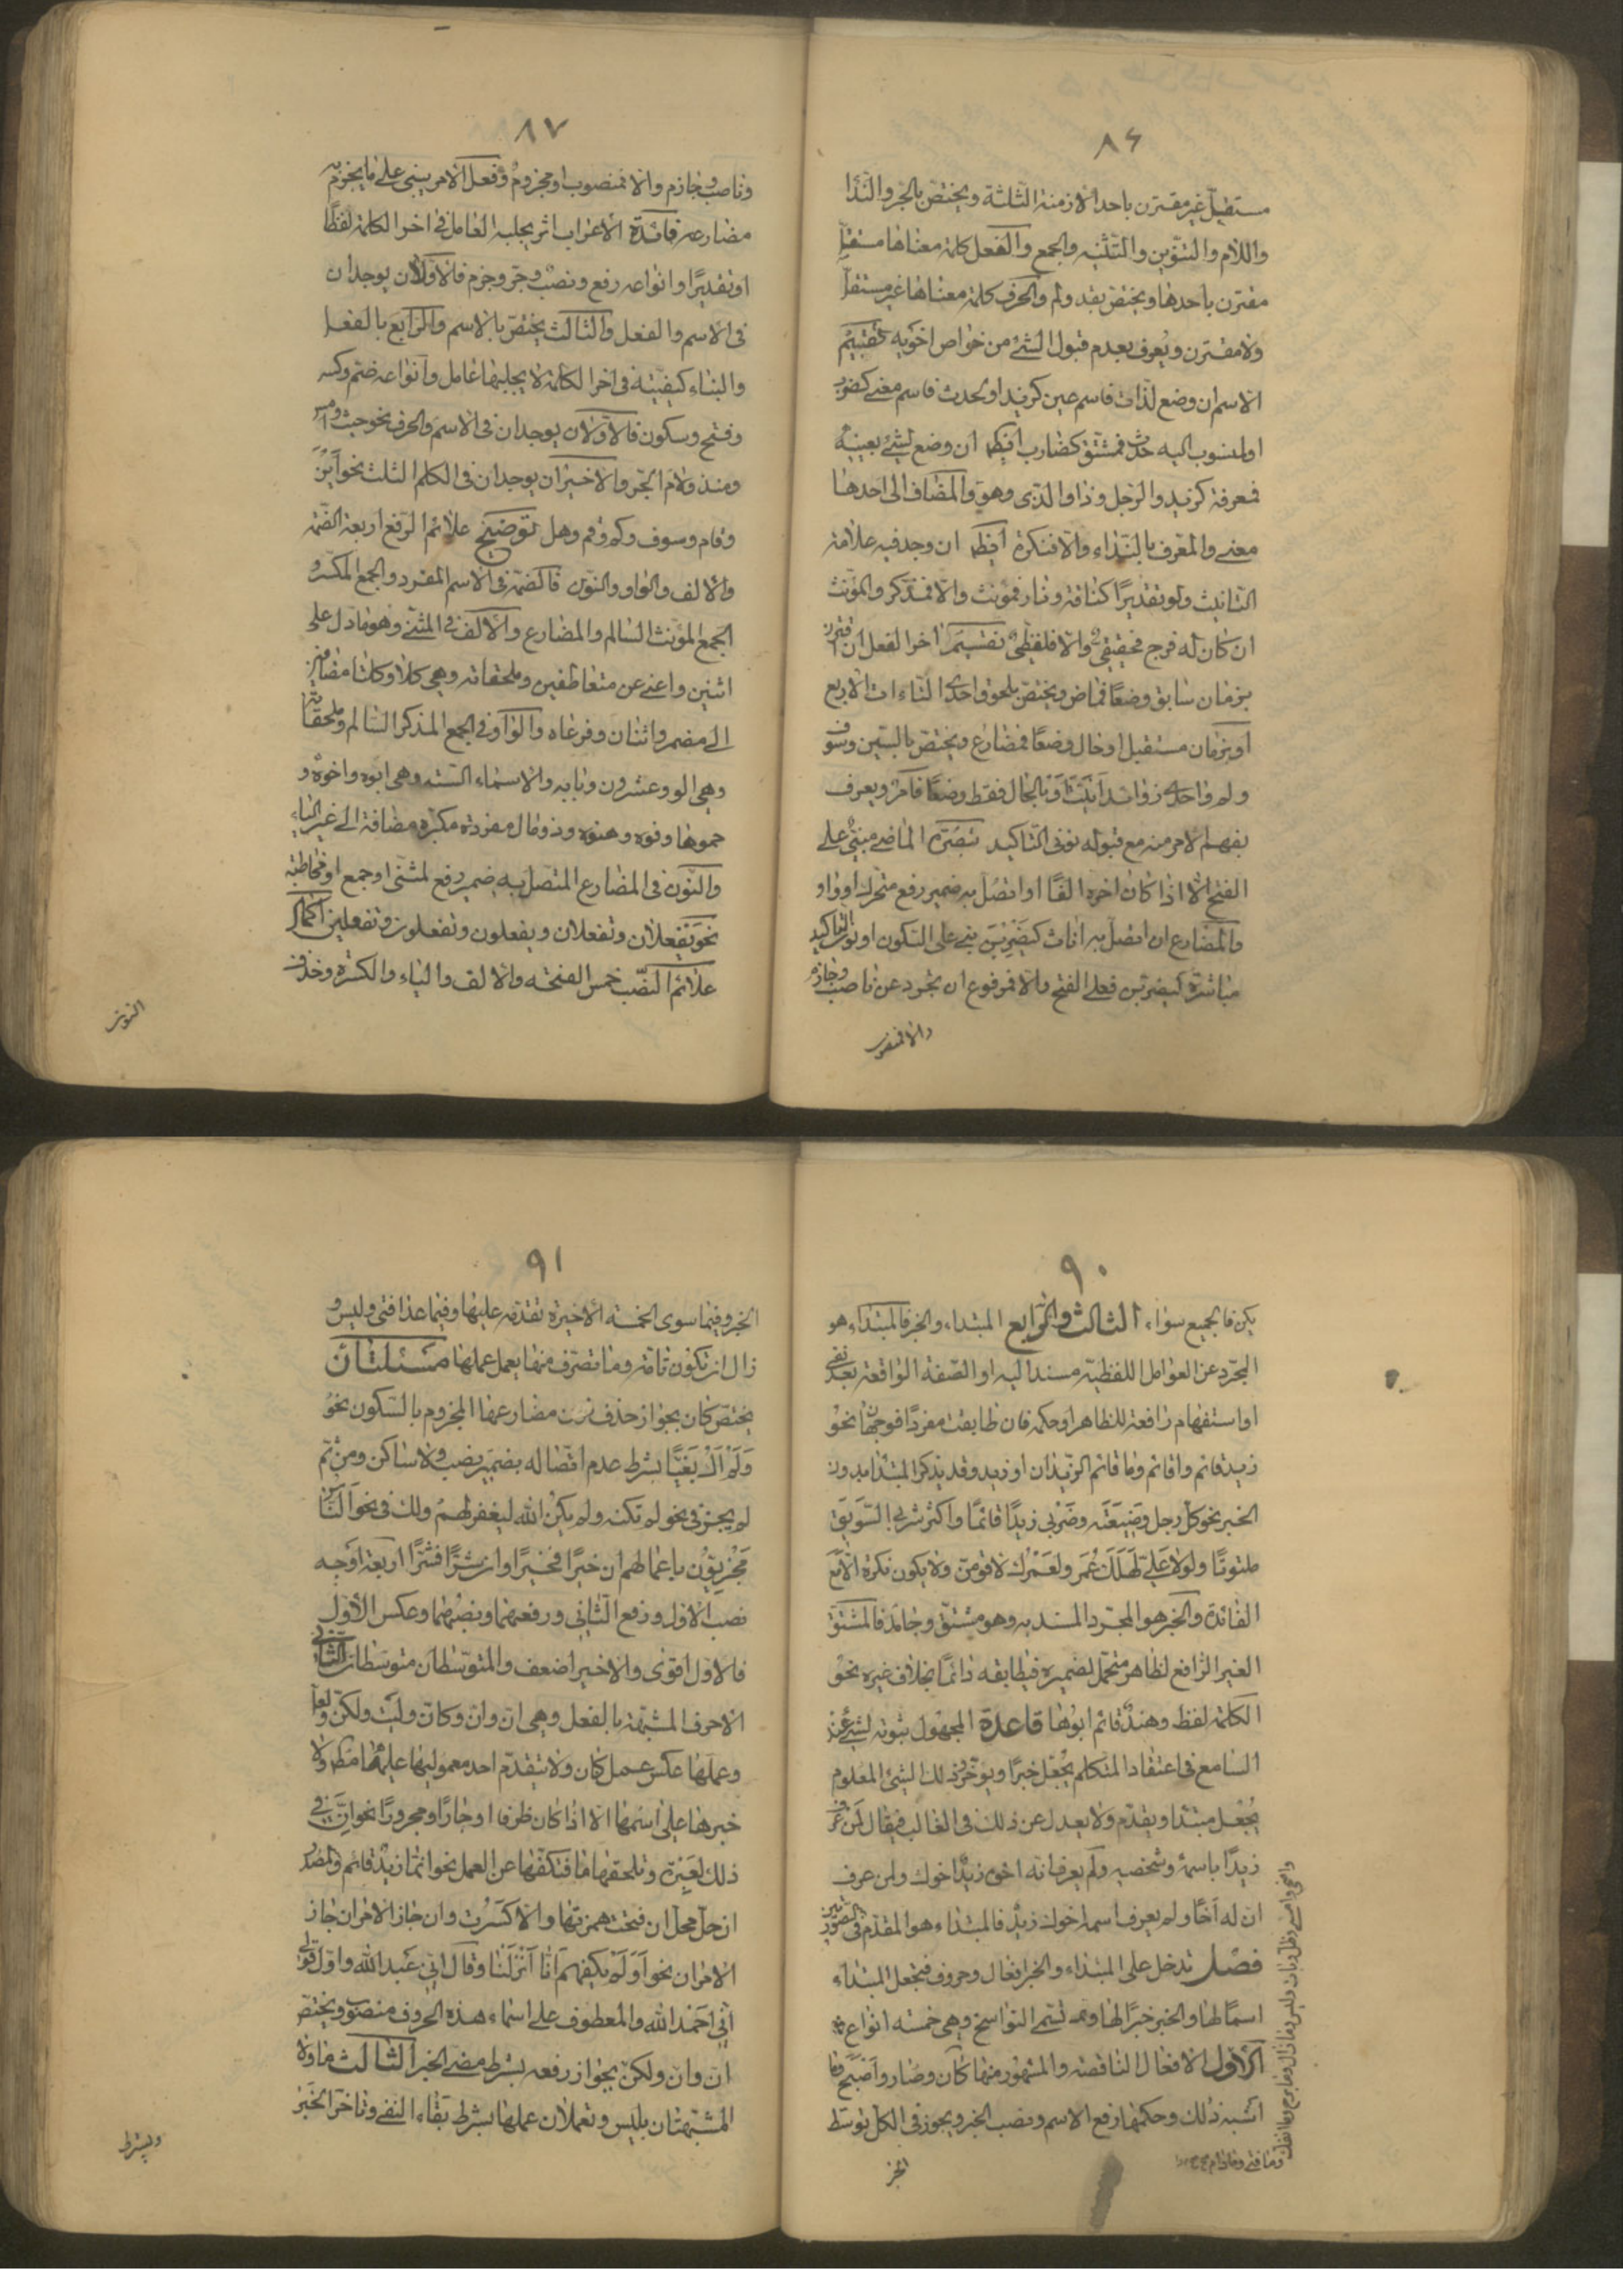 ٨٦
مستقل غير مقترن باحد الازمنة الثلثة ويختص بالجر والندا
واللام والتنوين والتثنيه والجمع والفعل كلمة معناها مستقل
مقترن باحدها ويختص بقد ولم والحرف كلمة معناها غير مستقل
ولا مقترن ويعرف بعدم قبول الشئ من خواص اخويه تقسيم
الاسم ان وضع لذات فاسم عين كزيد او لحدث فاسم معنى كضرب
او لمنسوب اليه حدث فمشتق كضارب ايضا ان وضع لشئ بعينه
فمعرفة كزيد والرجل وذا والذى وهو والمضاف الى احدها
معنى والمعرف بالنداء والا فنكرة ايضا ان وجد فيه علامة
التانيث ولو تقديرًا كناقة ونار فمؤنث والا فمذكر والمؤنث
ان كان له فرج فحقيقى والا فلفظى تقسيم اخر الفعل ان اقترن
بزمان سابق وضعًا فماض ويختص بلحوق احدى التاءات الاربع
او بزمان مستقبل او حال وضعًا فمضارع ويختص بالسين وسوف
ولم واحدى زوائد انيت او بالحال فقط وضعًا فامر ويعرف
بفهم الامر منه مع قبوله نونى التاكيد تبصرة الماضى مبنى على
الفتح الا اذا كان اخره الفًا او اتصل به ضمير رفع متحرك او واو
والمضارع ان اتصل به نون اناث كيضربن بنى على السكون او نون التاكيد
مباشرة كيضربن فعلى الفتح والا فمرفوع ان تجرد عن ناصب وجازم
والا فمنصوب
٨٧
وناصب وجازم والا فمنصوب او مجزوم وفعل الامر يبنى على ما يجزم به
مضارعه فائدة الاعراب اثر يجلبه العامل فى اخر الكلمة لفظًا
او تقديرًا وانواعه رفع ونصب وجر وجزم فالاولان يوجدان
فى الاسم والفعل والثالث يختص بالاسم والرابع بالفعل
والبناء كيفية فى اخر الكلمة لا يجلبها عامل وانواعه ضم وكسر
وفتح وسكون فالاولان يوجدان فى الاسم والحرف نحو حيث وامس
ومنذ ولام الجر والاخيران يوجدان فى الكلم الثلث نحو اين
وقام وسوف وكم وقم وهل توضيح علائم الرفع اربعة الضمة
والالف والواو والنون فالضمة فى الاسم المفرد والجمع المكسر و
الجمع المؤنث السالم والمضارع والالف فى المثنى وهو ما دل على
اثنين واغنى عن متعاطفين وملحقاته وهى كلا وكلتا مضافين
الى مضمر واثنان وفرعاه والواو فى الجمع المذكر السالم وملحقاته
وهى الو وعشرون وبابه والاسماء الستة وهى ابوه واخوه و
حموها وفوه وهنوه وذو مال مفردة مكبرة مضافة الى غير الياء
والنون فى المضارع المتصل به ضمير رفع لمثنى او جمع او مخاطبة
نحو يفعلان وتفعلان ويفعلون وتفعلون وتفعلين اكمال
علائم النصب خمس الفتحة والالف والياء والكسرة وحذف
النون
٩٠
يكن فالجميع سواء الثالث والرابع المبتداء والخبر فالمبتداء هو
المجرد عن العوامل اللفظية مسندا اليه او الصفة الواقعة بعد نفى
او استفهام رافعة للظاهر او حكمه فان طابقت مفردًا فوجهان نحو
زيد قائم واقائم وما قائم الزيدان او زيد وقد يذكر المبتدا بدون
الخبر نحو كل رجل وضيعته وضربى زيدًا قائمًا واكثر شربى السويق
ملتوتًا ولولا على لهلك عمر ولعمرك لاقومن ولا يكون نكرة الا مع
الفائدة والخبر هو المجرد المسند به وهو مشتق وجامد فالمشتق
الغير الرافع لظاهر متحمل لضميره فيطابقه دائمًا بخلاف غيره نحو
الكلمة لفظ وهند قائم ابوها قاعدة المجهول ثبوته لشئ عند
السامع فى اعتقاد المتكلم يجعل خبرًا ويؤخر وذلك الشئ المعلوم
يجعل مبتدا ويقدم ولا يعدل عن ذلك فى الغالب فيقال لمن عرف
زيدًا باسمه وشخصه ولم يعرف انه اخوه زيد اخوك ولمن عرف
ان له اخًا ولم يعرف اسمه اخوك زيد فالمبتداء هو المقدم فى الصورتين
فصل تدخل على المبتداء والخبر افعال وحروف فتجعل المبتداء
اسمًا لها والخبر خبرًا لها وتسمى النواسخ وهى خمسة انواع
الاول الافعال الناقصة والمشهور منها كان وصار واصبح وما
اشبه ذلك وحكمها رفع الاسم ونصب الخبر ويجوز فى الكل توسط
الخبر
واضحى وامسى وظل وبات وليس وما زال وما برح وما انفك
وما فتى وما دام
٩١
الخبر وفيما سوى الخمسة الاخيرة تقدمه عليها وفيما عدا فتى وليس و
زال ان تكون تامة وما تصرف منها يعمل عملها مسئلتان
يختص كان بجواز حذف نون مضارعها المجزوم بالسكون نحو
ولم اك بغيًّا بشرط عدم اتصاله بضمير نصب ولا ساكن ومن ثم
لم يجز فى نحو لم تكنه ولم يكن الله ليغفر لهم ولك فى نحو الناس
مجزيون باعمالهم ان خيرًا فخيرًا وان شرًّا فشرًّا اربعة اوجه
نصب الاول ورفع الثانى ورفعهما ونصبهما وعكس الاول
فالاول اقوى والاخير اضعف والمتوسطان متوسطان الثانى
الاحرف المشبهة بالفعل وهى ان وان وكان وليت ولكن ولعل
وعملها عكس عمل كان ولا يتقدم احد معموليها عليها مطلقا ولا
خبرها على اسمها الا اذا كان ظرفا او جارًّا ومجرورًا نحو ان فى
ذلك لعبرة وتلحقها ما فتكفها عن العمل نحو انما زيد قائم والمصدر
ان حل محل ان فتحت همزتها والا كسرت وان جاز الامران جاز
الامران نحو اولم يكفهم انا انزلنا وقال انى عبد الله واول قولى
انى احمد الله والمعطوف على اسماء هذه الحروف منصوب ويختص
ان وان ولكن بجواز رفعه بشرط مضى الخبر الثالث ما ولا
المشبهتان بليس وتعملان عملها بشرط بقاء النفى وتاخر الخبر
ويشترط